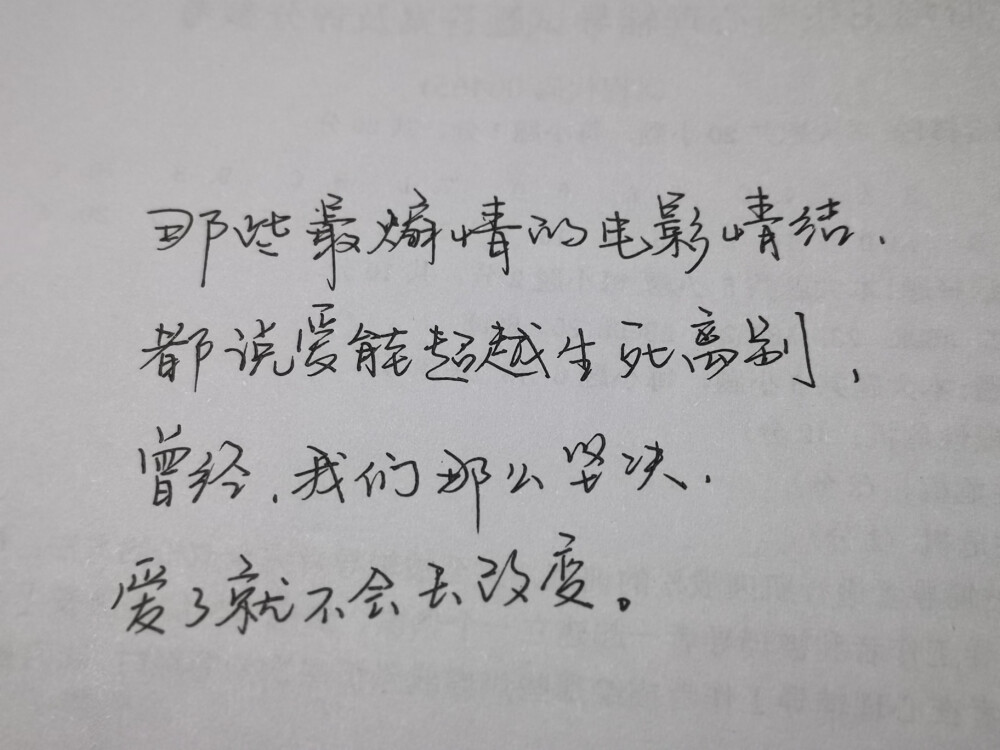 那些最煽情的电影情结.
都说爱能超越生死离别,
曾经.我们那么坚决.
爱了就不会去改变。